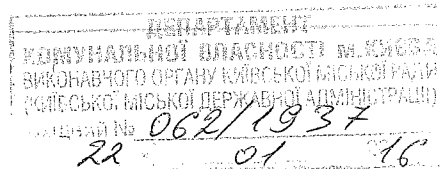 ДЕПАРТАМЕНТ
КОМУНАЛЬНОЇ ВЛАСНОСТІ М.КИЄВА
ВИКОНАВЧОГО ОРГАНУ КИЇВСЬКОЇ МІСЬКОЇ РАДИ
(КИЇВСЬКОЇ МІСЬКОЇ ДЕРЖАВНОЇ АДМІНІСТРАЦІЇ)
№ 062/1937
22 01 16